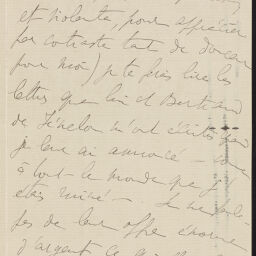 et violente, pour apprécier
par contraste tant de douceur
pour moi) je te ferai lire les
lettres que lui et Bertrand
de Fénelon m'ont écrites quand
je leur ai annoncé – comme
à tout le monde que j'
étais ruiné – Je ne parle
pas de leur offre énorme
d'argent ce qui